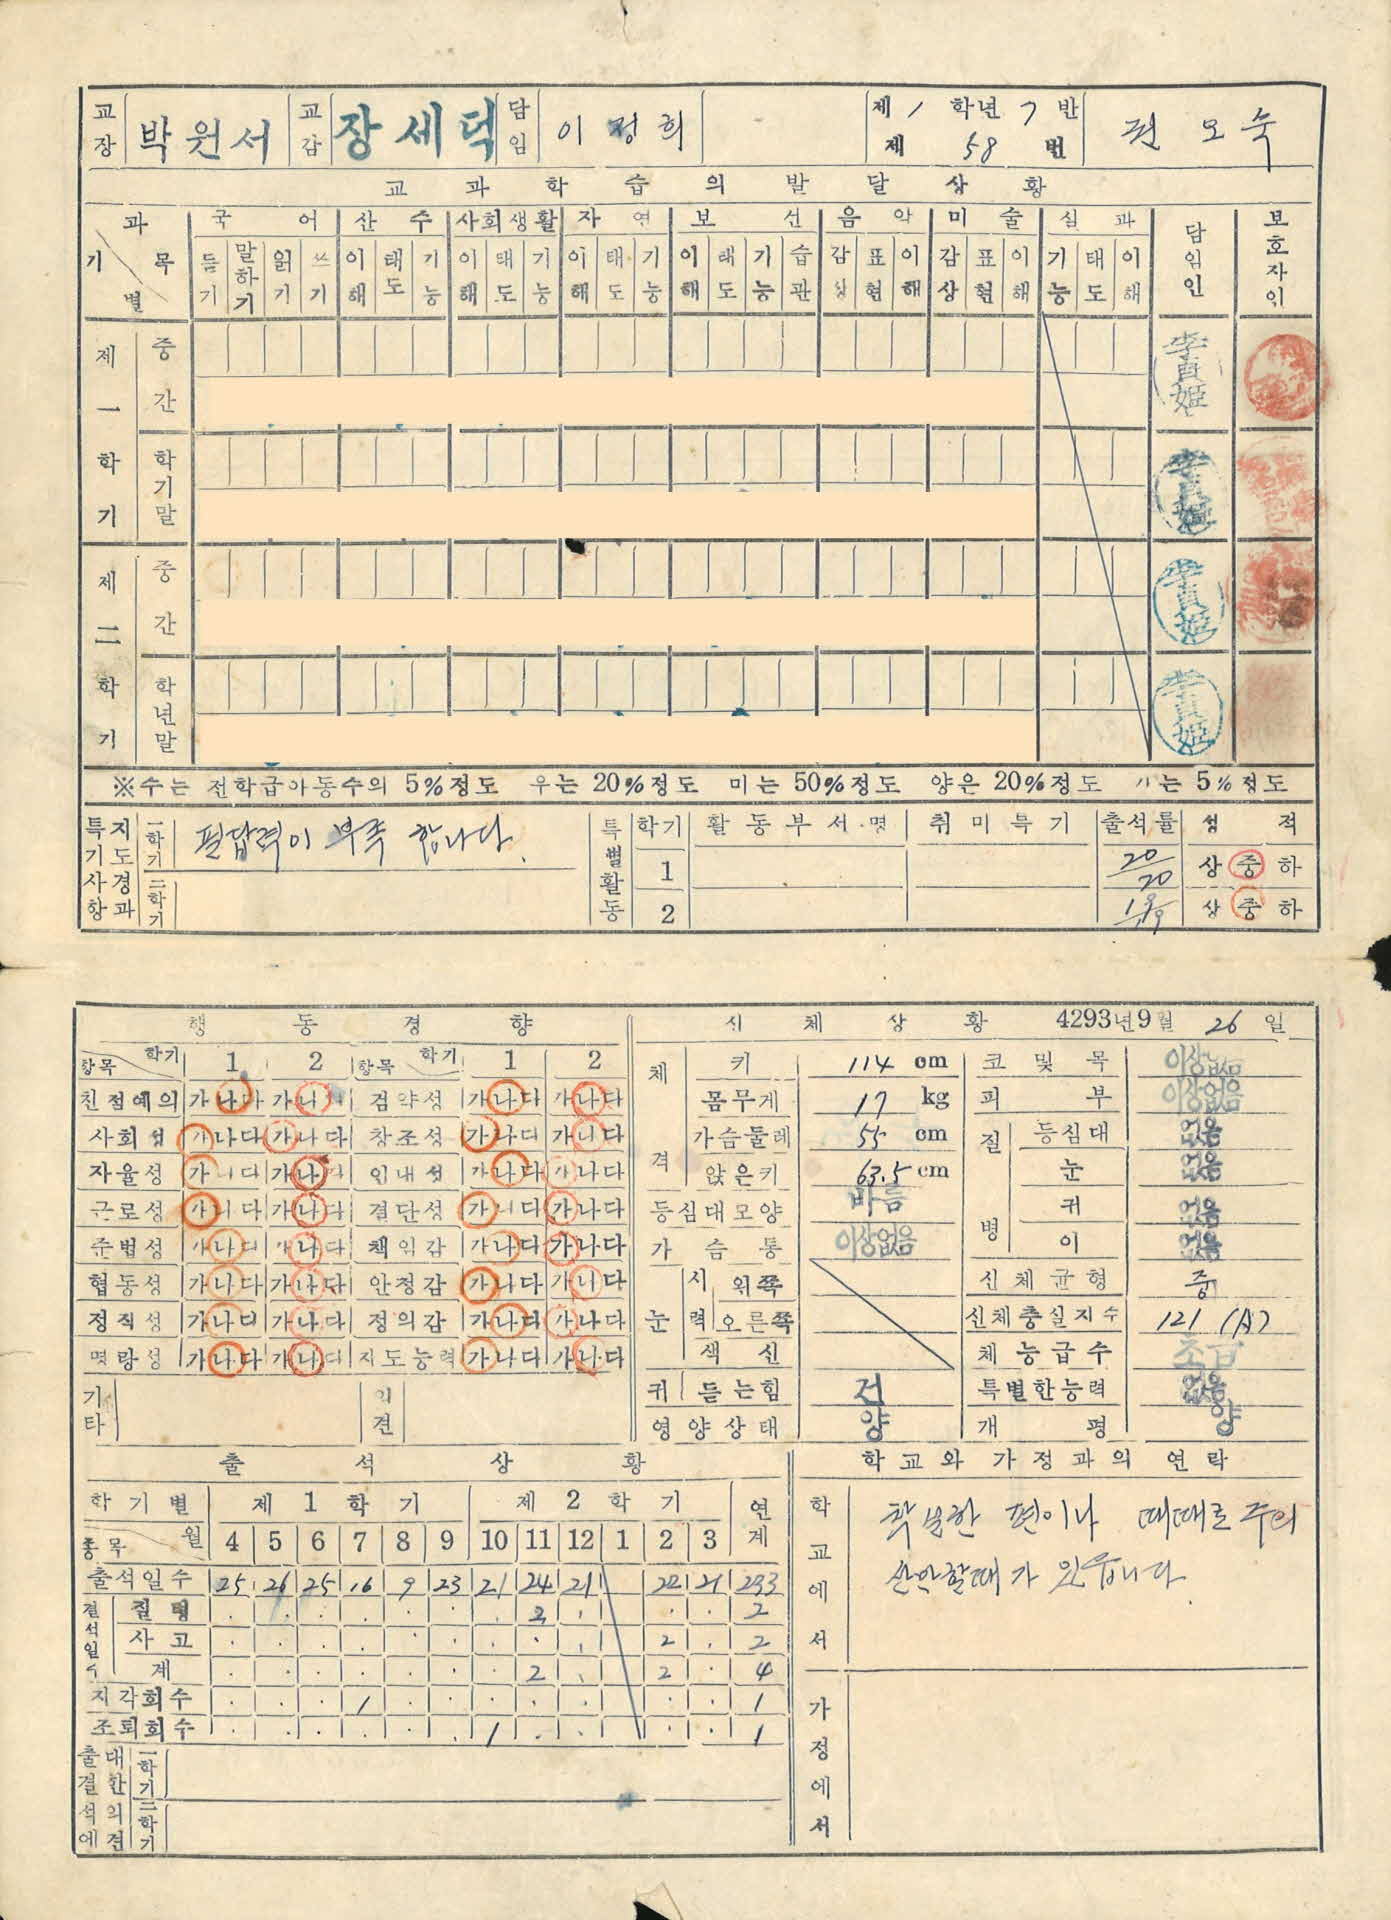 교장 박원서 교감 장세덕 담임 이정희 제 1 학년 7 반 제 58 번 권오숙
교과학습의 발달상황
과목 기별 국어 산수 사회생활 자연 보선 음악 미술 실과 담임인 보호자인
듣기 말하기 읽기 쓰기 이해 태도 기능 이해 태도 기능 이해 태도 기능 이해 태도 기능 습관 감상 표현 이해 감상 표현 이해 기능 태도 이해
제一학기 중간 李貞姬
학기말 李貞姬
제二학기 중간 李貞姬
학년말 李貞姬
※수는 전학급아동수의 5%정도 우는 20%정도 미는 50%정도 양은 20%정도 가는 5%정도
특기사항 지도경과 一학기 필답력이 부족 합니다.
二학기
특별활동 학기 활동부서명 취미특기 출석률 성적
1 20/20 상 중 하
2 19/19 상 중 하
행동경향
항목 학기 1 2 항목 학기 1 2
친절예의 가나다 가나다 검약성 가나다 가나다
사회성 가나다 가나다 창조성 가나다 가나다
자율성 가나다 가나다 인내성 가나다 가나다
근로성 가나다 가나다 결단성 가나다 가나다
준법성 가나다 가나다 책임감 가나다 가나다
협동성 가나다 가나다 안정감 가나다 가나다
정직성 가나다 가나다 정의감 가나다 가나다
명랑성 가나다 가나다 지도능력 가나다 가나다
기타 의견
신체상황 4293년 9월 26일
체격 키 114 cm 코 및 목 이상없음
몸무게 17 kg 피부 이상없음
가슴둘레 55 cm 질병 등심대 없음
앉은키 63.5 cm 눈 없음
등심대모양 바름 귀 없음
가슴통 이상없음 이 없음
눈 시력 왼쪽 신체균형 중
오른쪽 신체충실지수 121 (A)
색신 체능급수 초급
귀 듣는힘 건 특별한능력 없음
영양상태 양 개평 양
출석상황
학기별 제1학기 제2학기 연계
종목 월 4 5 6 7 8 9 10 11 12 1 2 3
출석일수 25 26 25 16 9 23 21 24 21 22 21 233
결석일수 질병 2 2
사고 2 2
계 2 2 4
지각회수 1 1
조퇴회수 1 1
출결석에 대한 의견 一학기
二학기
학교와 가정과의 연락
학교에서 착실한 편이나 때때로 주의
산만할때가 있읍니다.
가정에서